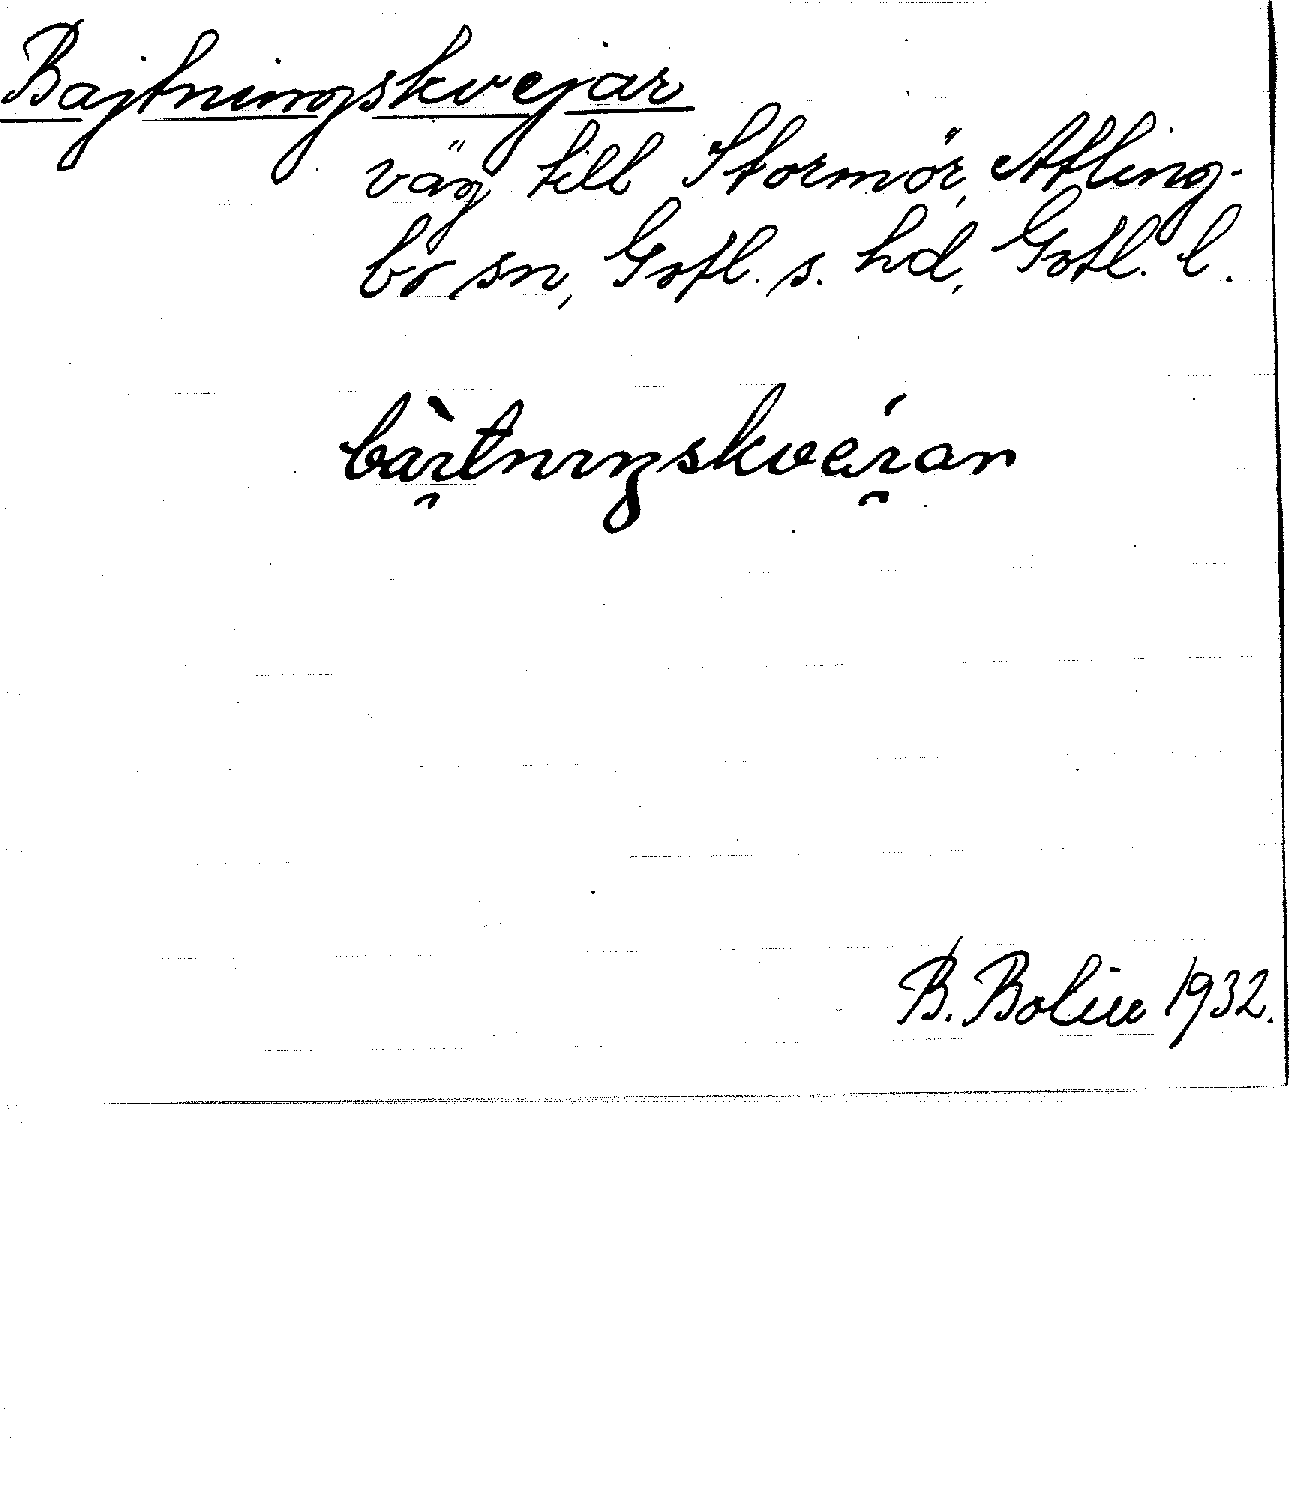 Bajtningskvejar
väg till Stormör, Atling-
bo sn, Gotl. s. hd, Gotl. l.
bàı̯tnıŋskvæ̀ı̯ar
B. Bolin 1932.